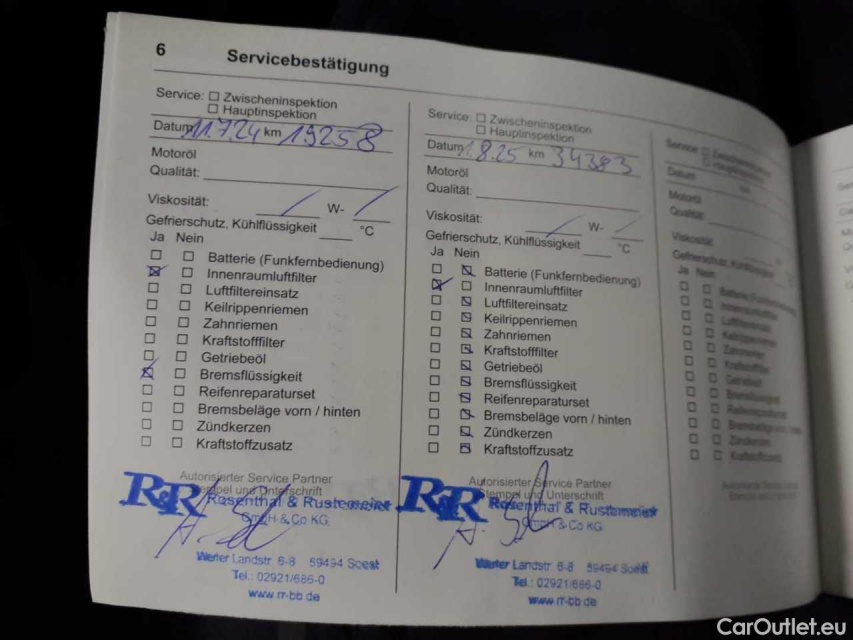 6 Servicebestätigung
Service: Zwischeninspektion
Hauptinspektion
Datum 11.724 km 19258
Motoröl
Qualität:
Viskosität: / W- /
Gefrierschutz, Kühlflüssigkeit °C
Ja Nein
Batterie (Funkfernbedienung)
Innenraumluftfilter
Luftfiltereinsatz
Keilrippenriemen
Zahnriemen
Kraftstofffilter
Getriebeöl
Bremsflüssigkeit
Reifenreparaturset
Bremsbeläge vorn / hinten
Zündkerzen
Kraftstoffzusatz
Autorisierter Service Partner
Stempel und Unterschrift
R&R Rosenthal & Rustemeier
GmbH & Co KG
Werler Landstr. 6-8 59494 Soest
Tel.: 02921/686-0
www.rr-bb.de
Service: Zwischeninspektion
Hauptinspektion
Datum 1.8.25 km 34383
Motoröl
Qualität:
Viskosität: / W- /
Gefrierschutz, Kühlflüssigkeit °C
Ja Nein
Batterie (Funkfernbedienung)
Innenraumluftfilter
Luftfiltereinsatz
Keilrippenriemen
Zahnriemen
Kraftstofffilter
Getriebeöl
Bremsflüssigkeit
Reifenreparaturset
Bremsbeläge vorn / hinten
Zündkerzen
Kraftstoffzusatz
Autorisierter Service Partner
Stempel und Unterschrift
R&R Rosenthal & Rustemeier
GmbH & Co KG
Werler Landstr. 6-8 59494 Soest
Tel.: 02921/686-0
www.rr-bb.de
Service:
Datum
Motoröl
Qualität:
Viskosität:
Ja Nein
CarOutlet.eu